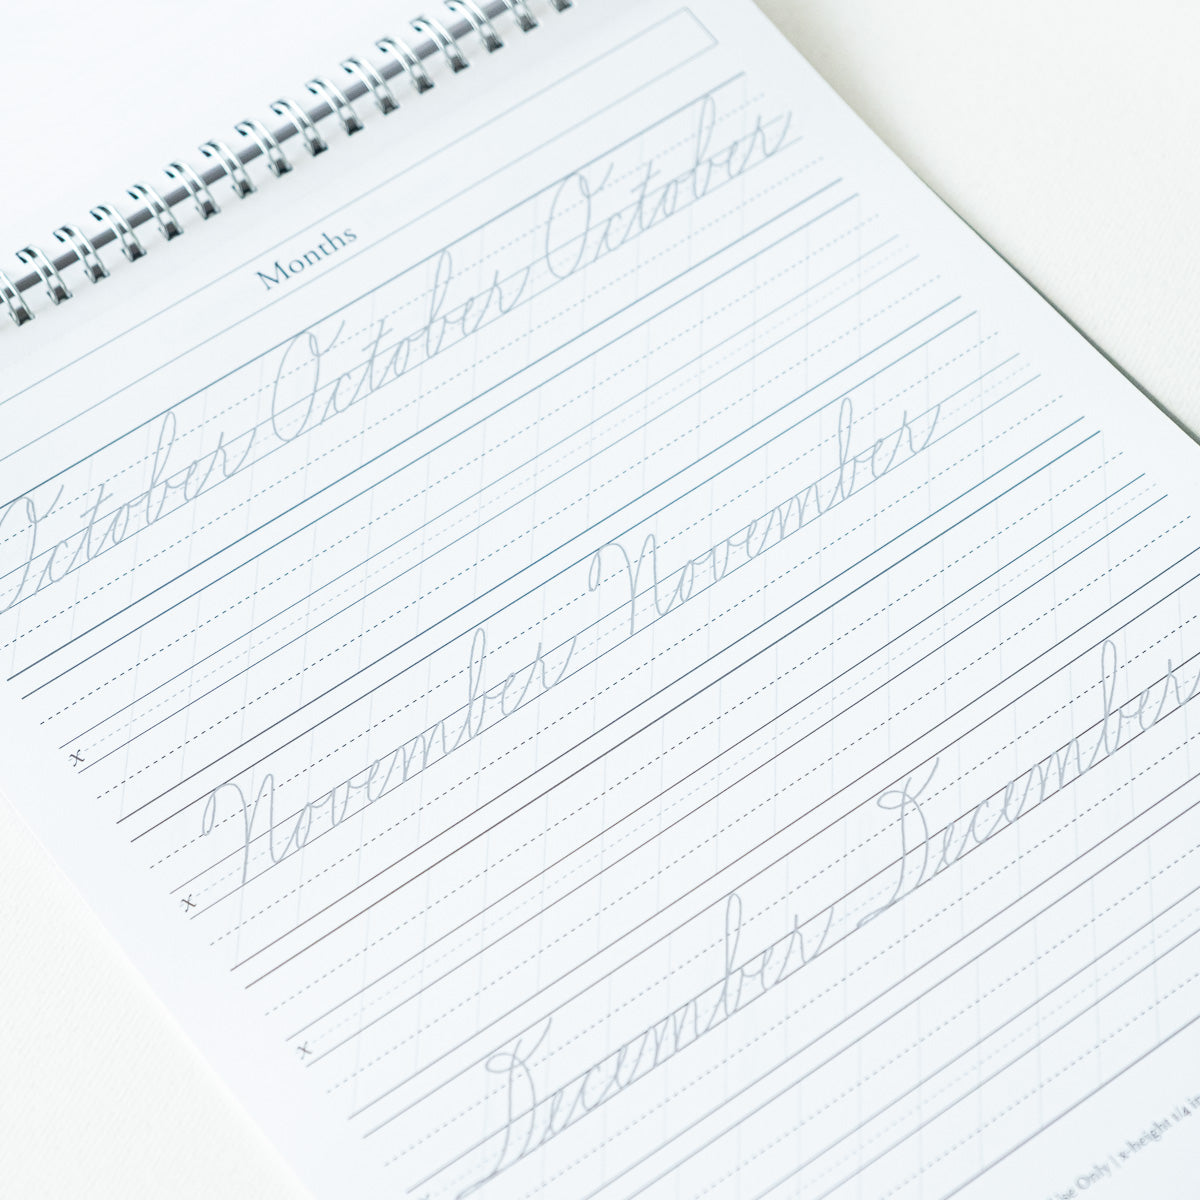 Months
October October October
x
November November
x
December December
x
Use Only | x-height 1/4 in